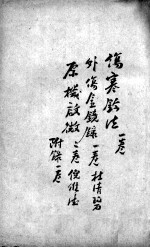 傷寒鈐法一卷
外傷金鏡錄一卷 杜清碧
原機啟微二卷 倪維德
附錄一卷